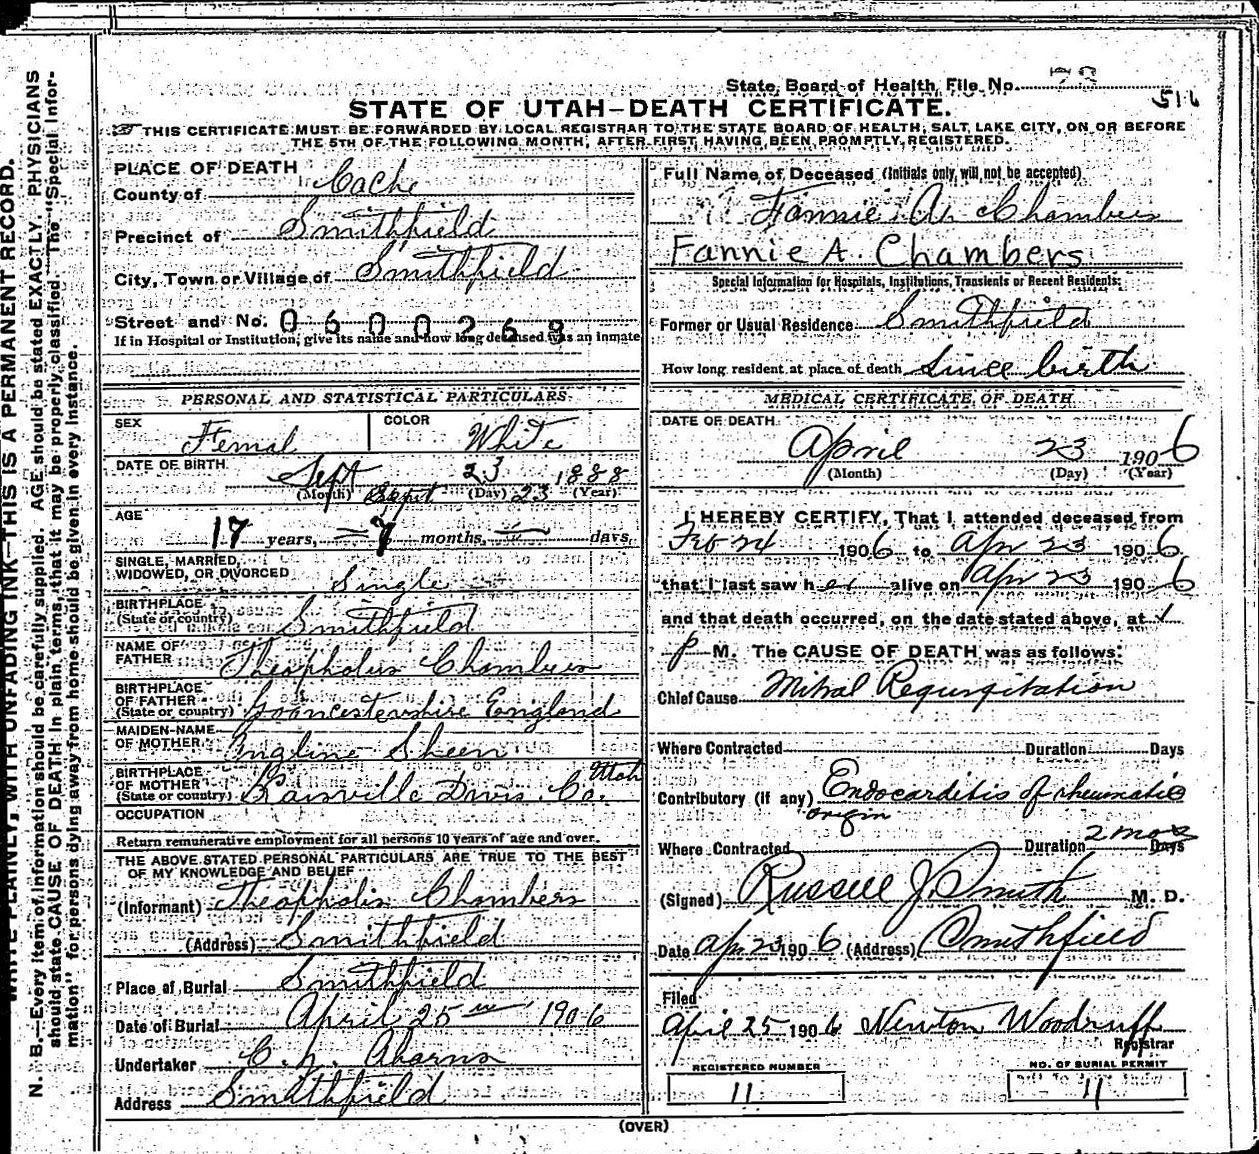 State Board of Health File No. 73
516
STATE OF UTAH—DEATH CERTIFICATE.
THIS CERTIFICATE MUST BE FORWARDED BY LOCAL REGISTRAR TO THE STATE BOARD OF HEALTH, SALT LAKE CITY, ON OR BEFORE
THE 5TH OF THE FOLLOWING MONTH, AFTER FIRST HAVING BEEN PROMPTLY REGISTERED.
PLACE OF DEATH
County of Cache
Precinct of Smithfield
City, Town or Village of Smithfield
Street and No. 0600268
If in Hospital or Institution, give its name and how long deceased was an inmate
PERSONAL AND STATISTICAL PARTICULARS.
SEX Femal COLOR White
DATE OF BIRTH Sept 23 1888
(Month) Sept (Day) 23 (Year)
AGE 17 years, 7 months, — days
SINGLE, MARRIED,
WIDOWED, OR DIVORCED Single
BIRTHPLACE
(State or country) Smithfield
NAME OF
FATHER Theopholus Chambers
BIRTHPLACE
OF FATHER
(State or country) England
MAIDEN-NAME
OF MOTHER Sheen
BIRTHPLACE
OF MOTHER
(State or country) Davis Co. Utah
OCCUPATION
Return remunerative employment for all persons 10 years of age and over.
THE ABOVE STATED PERSONAL PARTICULARS ARE TRUE TO THE BEST
OF MY KNOWLEDGE AND BELIEF
(Informant) Theopholis Chambers
(Address) Smithfield
Place of Burial Smithfield
Date of Burial April 25 1906
Undertaker
Address Smithfield
Full Name of Deceased (Initials only, will not be accepted)
Fannie A. Chambers
Fannie A. Chambers
Special Information for Hospitals, Institutions, Transients or Recent Residents:
Former or Usual Residence Smithfield
How long resident at place of death Since birth
MEDICAL CERTIFICATE OF DEATH
DATE OF DEATH
April 23 1906
(Month) (Day) (Year)
I HEREBY CERTIFY, That I attended deceased from
Feb 24 1906 to Apr 23 1906
that I last saw her alive on Apr 23 1906
and that death occurred, on the date stated above, at 1
P M. The CAUSE OF DEATH was as follows:
Chief Cause Mitral Regurgitation
Where Contracted Duration Days
Contributory (if any) Endocarditis of rheumatic
origin
2 mos
Where Contracted Duration Days
(Signed) Russell J. Smith M. D.
Date Apr 23 1906 (Address) Smithfield
Filed
April 25 1906 Newton Woodruff
Registrar
REGISTERED NUMBER
11
NO. OF BURIAL PERMIT
11
(OVER)
N. B.—Every item of information should be carefully supplied. AGE should be stated EXACTLY. PHYSICIANS
should state CAUSE OF DEATH in plain terms, that it may be properly classified. The "Special Infor-
mation" for persons dying away from home should be given in every instance.
WRITE PLAINLY, WITH UNFADING INK—THIS IS A PERMANENT RECORD.